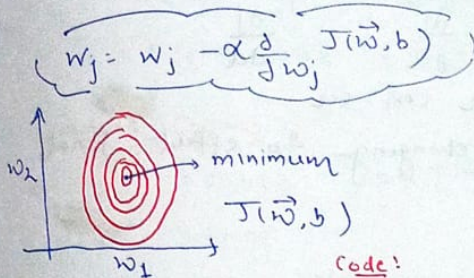 wj = wj - α ∂/∂wj J(w⃗, b)
w2
minimum
J(w⃗, b)
w1
Code: